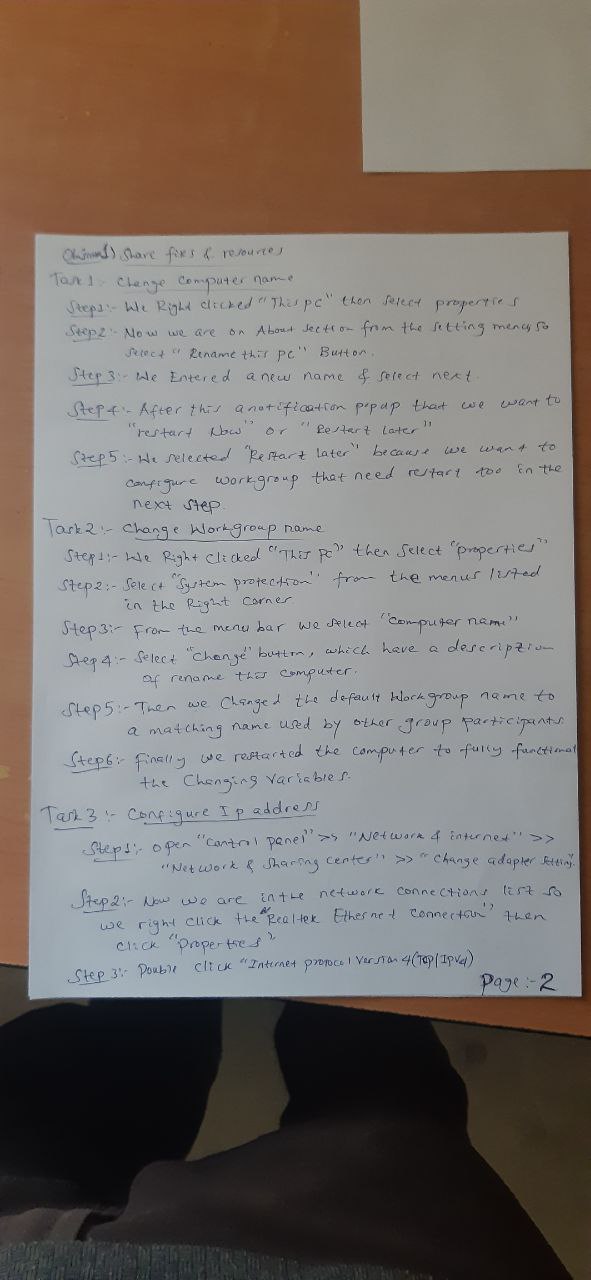 Share files & resources
Task 1:- Change Computer name
Step1:- We Right clicked "This pc" then select properties
Step2:- Now we are on About section from the setting menus so
select "Rename this pc" Button.
Step 3:- We Entered a new name & select next.
Step4:- After this a notification popup that we want to
"restart Now" or "Restart later"
Step5:- We selected "Restart later" because we want to
configure workgroup that need restart too in the
next step.
Task2:- Change Workgroup name
Step1:- We Right clicked "This pc" then select "properties"
Step2:- Select "System protection" from the menus listed
in the Right corner
Step3:- From the menu bar we select "Computer name"
Step4:- Select "Change" button, which have a description
of rename this computer.
Step5:- Then we Changed the default Workgroup name to
a matching name used by other group participants
Step6:- finally we restarted the computer to fully functional
the Changing Variables.
Task3:- Configure Ip address
Step1:- open "Control panel" >> "Network & internet" >>
"Network & Sharing center" >> "Change adapter setting"
Step2:- Now we are in the network connections list so
we right click the "Realtek Ethernet connection" then
click "Properties"
Step 3:- Double click "Internet protocol version 4(Tcp/Ipv4)
Page:-2